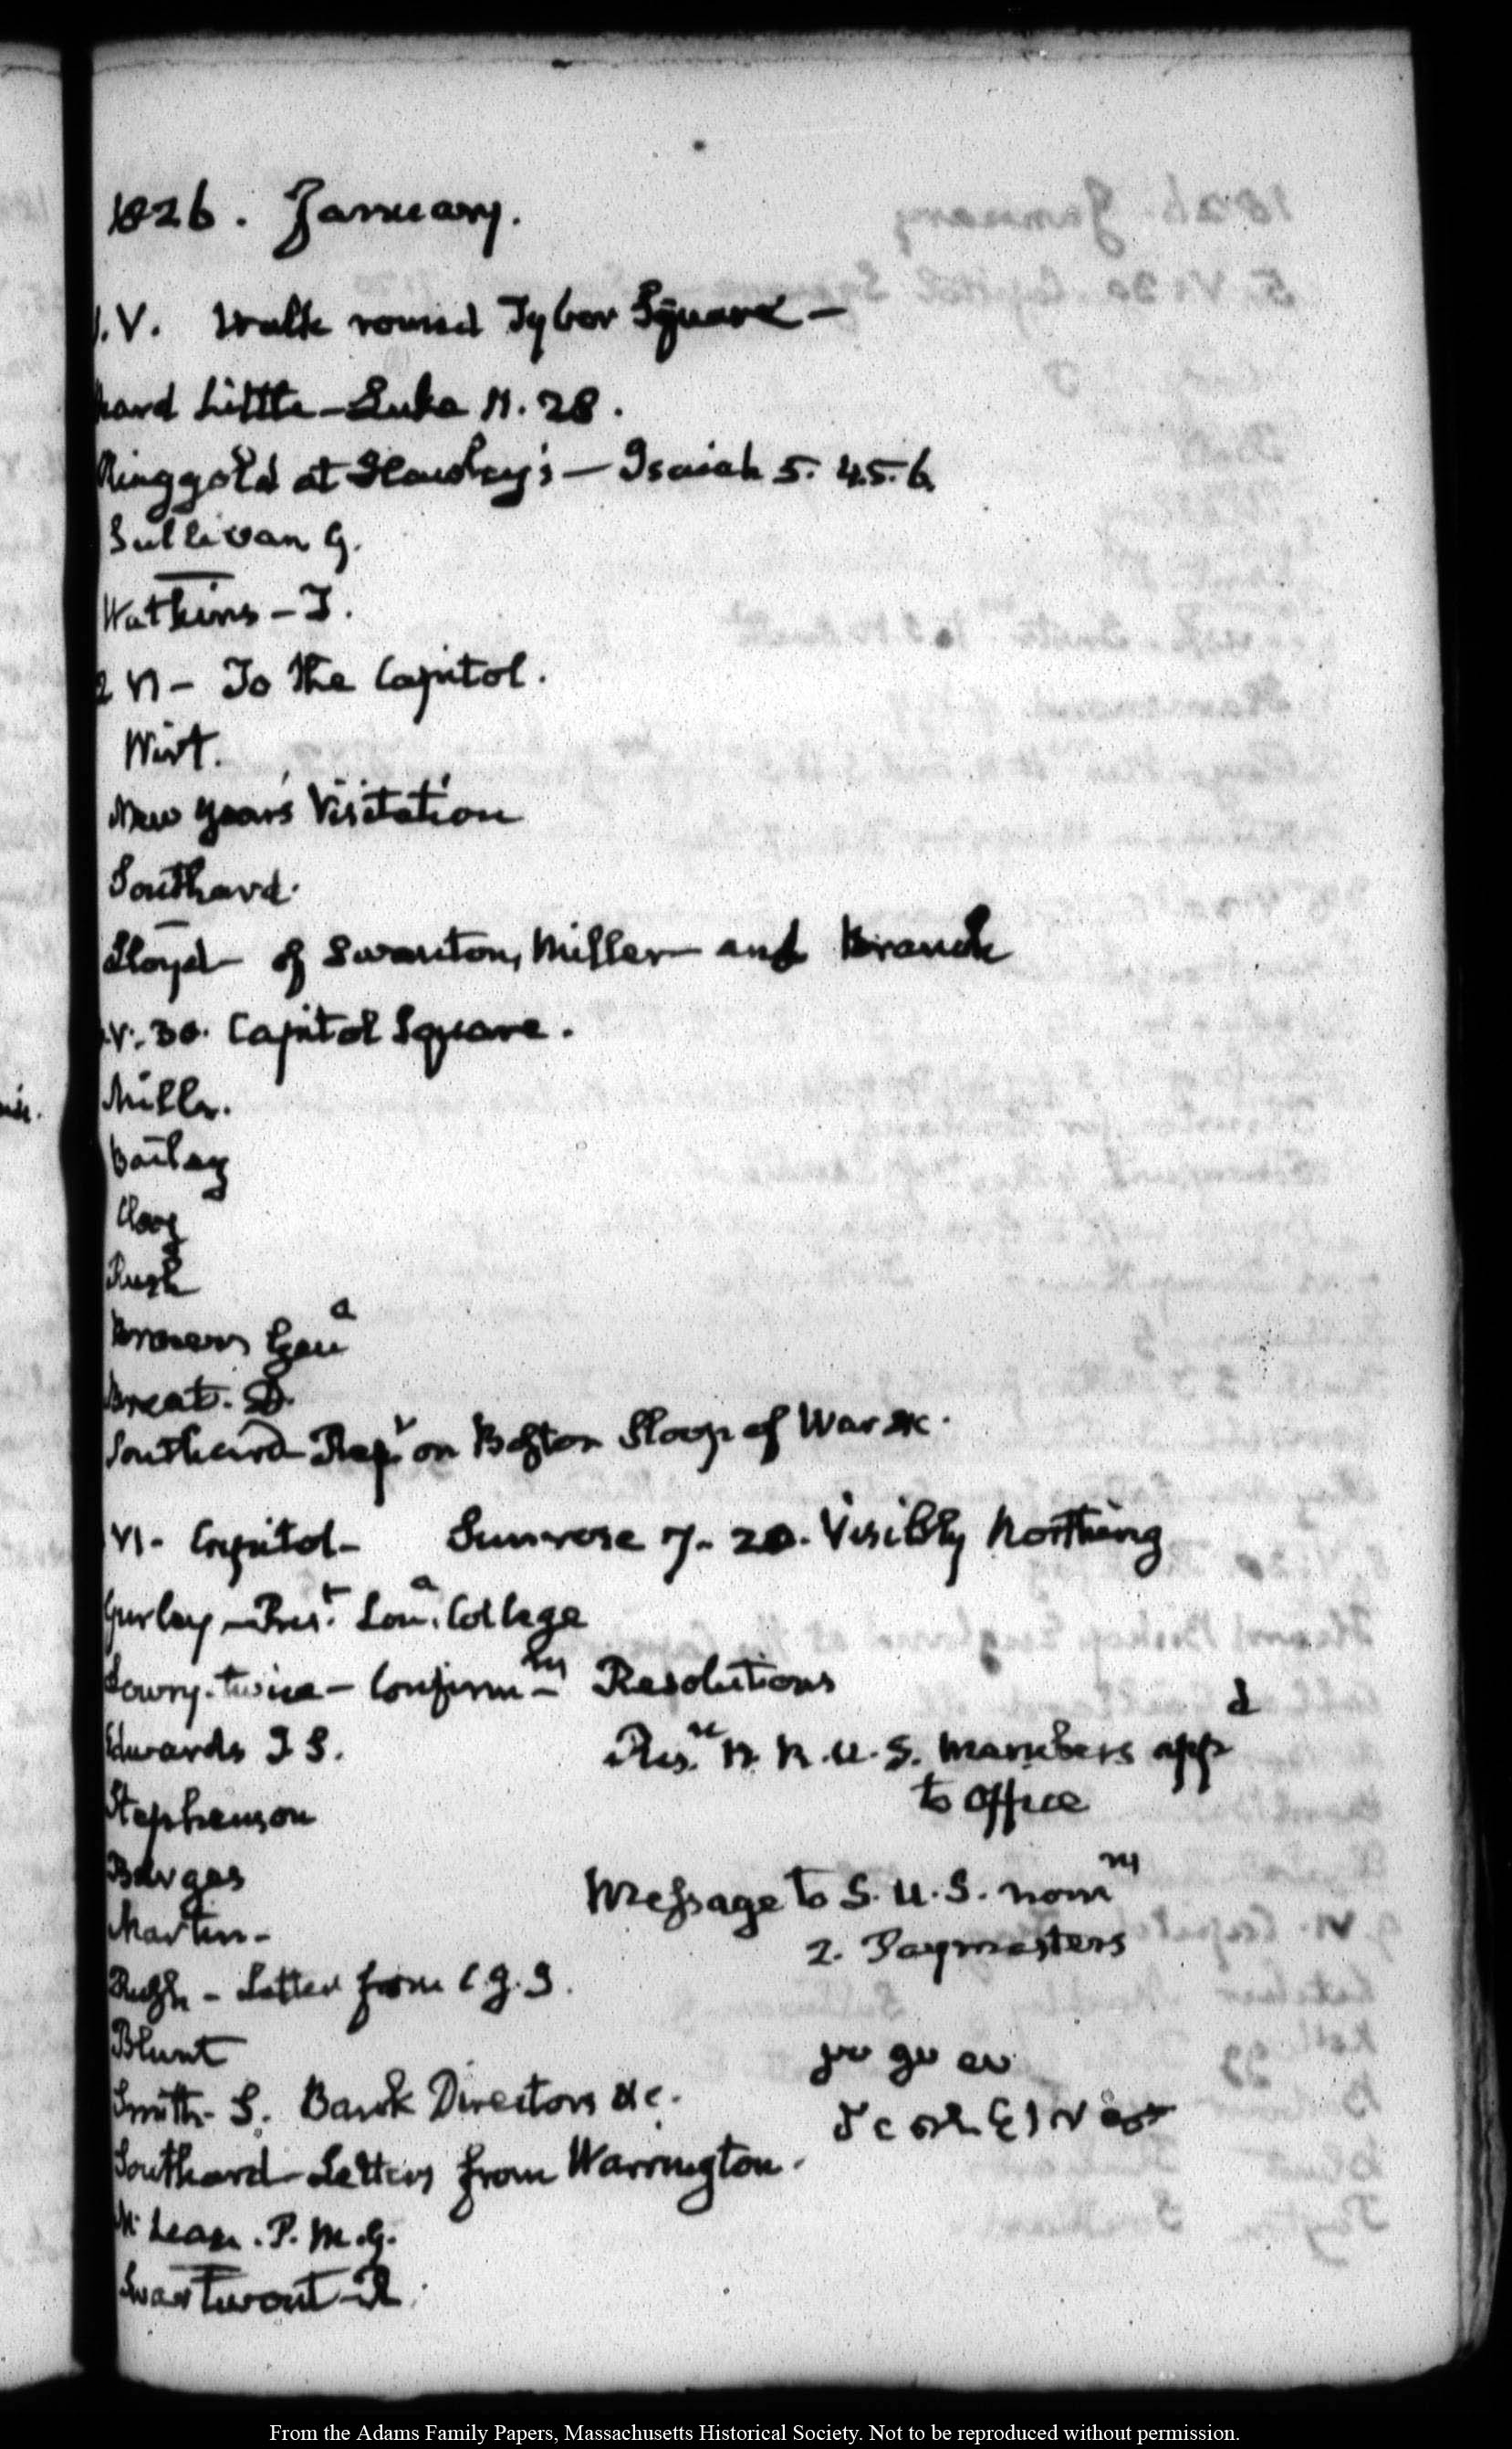 1826. January.
V. Walk round Tyber Square—
heard Little—Luke 11. 28.
Ringgold at Hawley's—Isaiah 5. 4.5.6.
Sullivan G.
Watkins—T.
VI—To the Capitol.
Wirt.
New Year's Visitation
Southard.
Lloyd— of Swanton, Miller and Branch
V. 30. Capitol Square.
Mills.
Bailey
Clay
Rugh
Brown Genᵃ
Breat. D.
Southard—Repᵗ on Boston Sloop of War &c.
VI. Capitol— Sunrose 7. 20. Visibly Northing
Gurley—Presᵗ. Louᵃ. College
Lowry—twice—Confirmⁿ Resolutions
Edwards I S.
H. R. U. S. Members appᵈ
to Office
Stephenson
Burges
Message to S. U. S. nomⁿ
Martin—
2. Paymasters
Rush—Letter from C. J. I.
Blunt
Smith. S. Bank Directors &c.
Southard—Letters from Warrington.
McLean. P. M. G.
Swartwout—R.
From the Adams Family Papers, Massachusetts Historical Society. Not to be reproduced without permission.